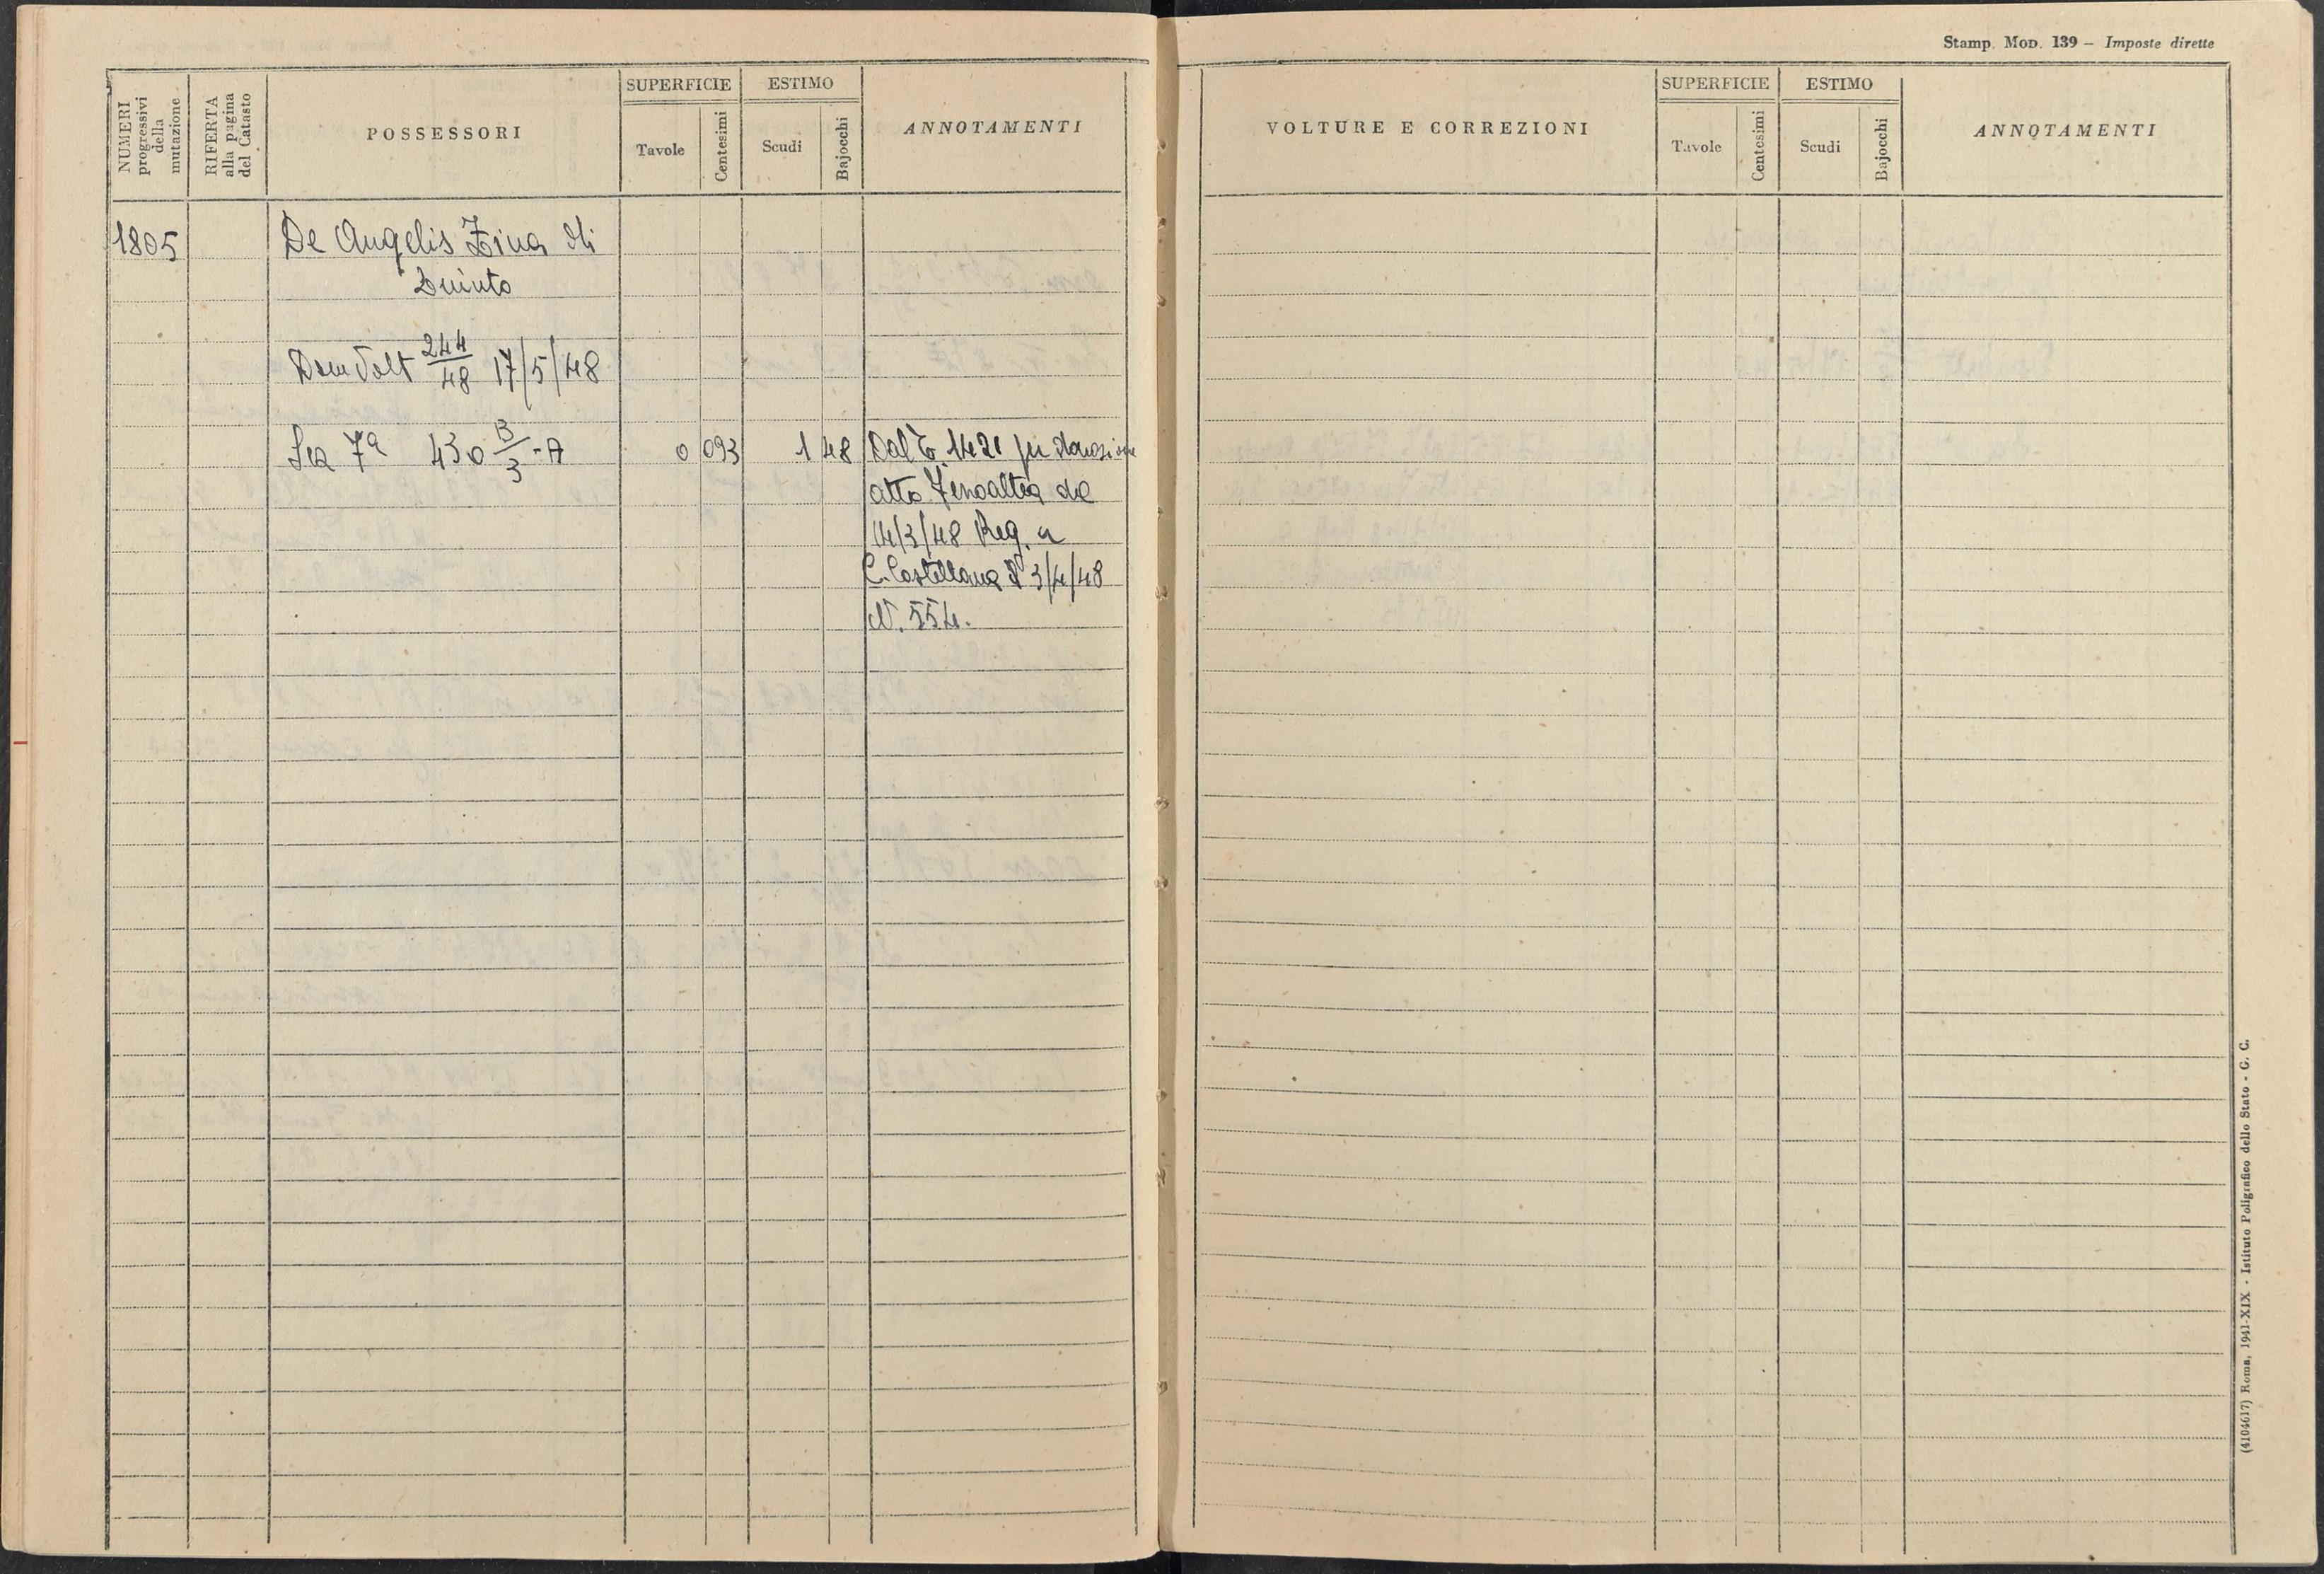 Stamp. Mod. 139 – Imposte dirette
NUMERI progressivi della mutazione
RIFERTA alla pagina del Catasto
POSSESSORI
SUPERFICIE
Tavole
Centesimi
ESTIMO
Scudi
Bajocchi
ANNOTAMENTI
1805
De Angelis Zina di
Quinto
Dom Volt 244/48 17/5/48
Sez 7ª 430 B/3 - A 0 093 1 48 Dal C. 1421 per donazione
atto Fenoaltea del
14/3/48 Reg. a
C. Castellana il 3/4/48
N. 554.
VOLTURE E CORREZIONI
SUPERFICIE
Tavole
Centesimi
ESTIMO
Scudi
Bajocchi
ANNOTAMENTI
(4104617) Roma, 1941-XIX - Istituto Poligrafico dello Stato - G. C.